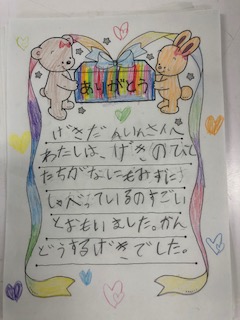 ありがとう
げきだんいんさんへ
わたしは、げきのひと
たちがなにもみずに
しゃべっているのすごい
とおもいました。かん
どうするげきでした。